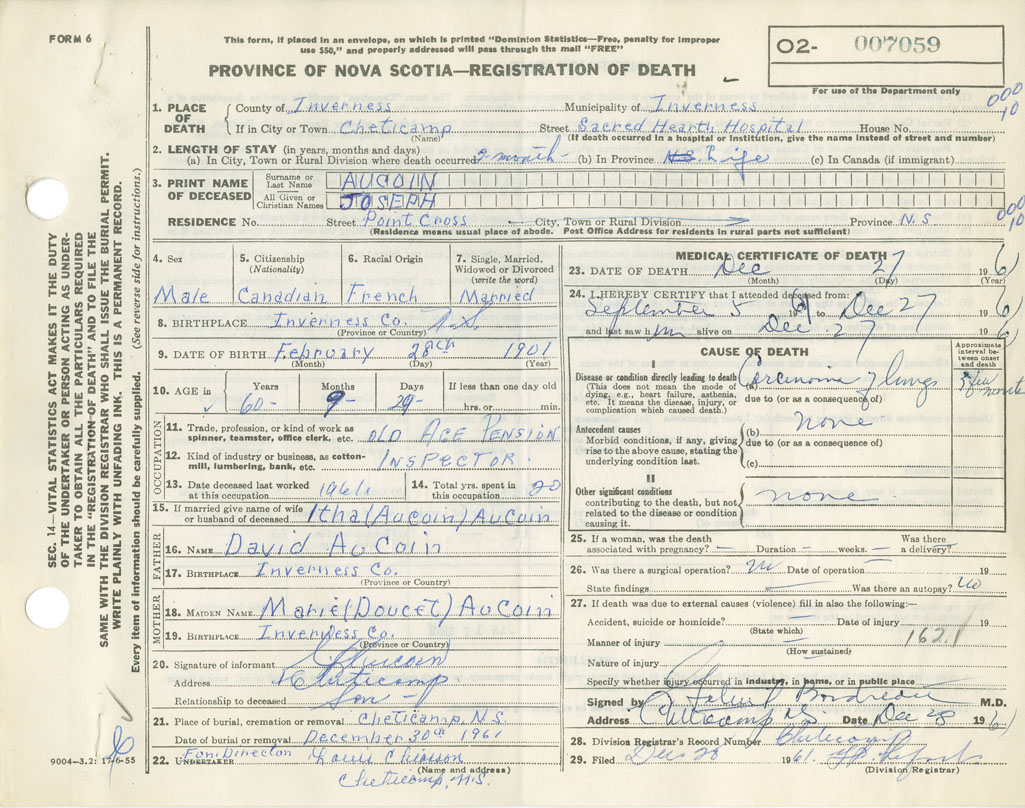 FORM 6
This form, if placed in an envelope, on which is printed "Dominion Statistics—Free, penalty for improper
use $50," and properly addressed will pass through the mail "FREE"
PROVINCE OF NOVA SCOTIA—REGISTRATION OF DEATH
O2- 007059
For use of the Department only
1. PLACE OF DEATH
County of Inverness Municipality of Inverness
If in City or Town Cheticamp Street Sacred Hearth Hospital House No.
(Name) (If death occurred in a hospital or Institution, give the name instead of street and number)
000
10
2. LENGTH OF STAY (in years, months and days)
(a) In City, Town or Rural Division where death occurred 2-month- (b) In Province N.S. Life (c) In Canada (if immigrant)
3. PRINT NAME OF DECEASED
Surname or Last Name AUCOIN
All Given or Christian Names JOSEPH
RESIDENCE No. Street Point Cross City, Town or Rural Division Province N.S
(Residence means usual place of abode. Post Office Address for residents in rural parts not sufficient)
000
10
4. Sex 5. Citizenship (Nationality) 6. Racial Origin 7. Single, Married, Widowed or Divorced (write the word)
Male Canadian French Married
8. BIRTHPLACE Inverness Co. N.S.
(Province or Country)
9. DATE OF BIRTH February 28th 1901
(Month) (Day) (Year)
10. AGE in Years Months Days If less than one day old
60- 9- 29- hrs. or min.
OCCUPATION
11. Trade, profession, or kind of work as spinner, teamster, office clerk, etc. OLD AGE PENSION
12. Kind of industry or business, as cotton-mill, lumbering, bank, etc. INSPECTOR.
13. Date deceased last worked at this occupation 1961. 14. Total yrs. spent in this occupation 20
15. If married give name of wife or husband of deceased Itha (AuCoin) AuCoin
FATHER
16. NAME David AuCoin
17. BIRTHPLACE Inverness Co.
(Province or Country)
MOTHER
18. MAIDEN NAME Marie (Doucet) AuCoin
19. BIRTHPLACE Inverness Co.
(Province or Country)
20. Signature of informant Aucoin
Address Cheticamp
Relationship to deceased Son -
21. Place of burial, cremation or removal Cheticamp, N.S.
Date of burial or removal December 30th 1961
Fun. Director
22. UNDERTAKER Louis Chiasson
(Name and address)
Cheticamp, N.S.
9004—3.2: 17-6-55
MEDICAL CERTIFICATE OF DEATH
23. DATE OF DEATH Dec 27 1961
(Month) (Day) (Year)
24. I HEREBY CERTIFY that I attended deceased from:
September 5 1961 to Dec 27 1961
and last saw him alive on Dec. 27 1961
CAUSE OF DEATH
Approximate interval between onset and death
I
Disease or condition directly leading to death (a) Carcinoma of lungs few months
(This does not mean the mode of dying, e.g., heart failure, asthenia, etc. It means the disease, injury, or complication which caused death.)
due to (or as a consequence of)
Antecedent causes
Morbid conditions, if any, giving rise to the above cause, stating the underlying condition last.
(b) none
due to (or as a consequence of)
(c)
II
Other significant conditions
contributing to the death, but not related to the disease or condition causing it.
none
25. If a woman, was the death associated with pregnancy? — Duration — weeks. — Was there a delivery?
26. Was there a surgical operation? no Date of operation 19
State findings Was there an autopsy? No
27. If death was due to external causes (violence) fill in also the following:—
Accident, suicide or homicide? Date of injury 19
(State which)
Manner of injury 162.1
(How sustained)
Nature of injury
Specify whether injury occurred in industry, in home, or in public place
Signed by Boudreau M.D.
Address Cheticamp N.S. Date Dec 28 1961
28. Division Registrar's Record Number Cheticamp
29. Filed Dec 28 1961.
(Division Registrar)
SEC. 14—VITAL STATISTICS ACT MAKES IT THE DUTY
OF THE UNDERTAKER OR PERSON ACTING AS UNDER-
TAKER TO OBTAIN ALL THE PARTICULARS REQUIRED
IN THE "REGISTRATION OF DEATH" AND TO FILE THE
SAME WITH THE DIVISION REGISTRAR WHO SHALL ISSUE THE BURIAL PERMIT.
WRITE PLAINLY WITH UNFADING INK. THIS IS A PERMANENT RECORD.
Every item of information should be carefully supplied. (See reverse side for instructions.)